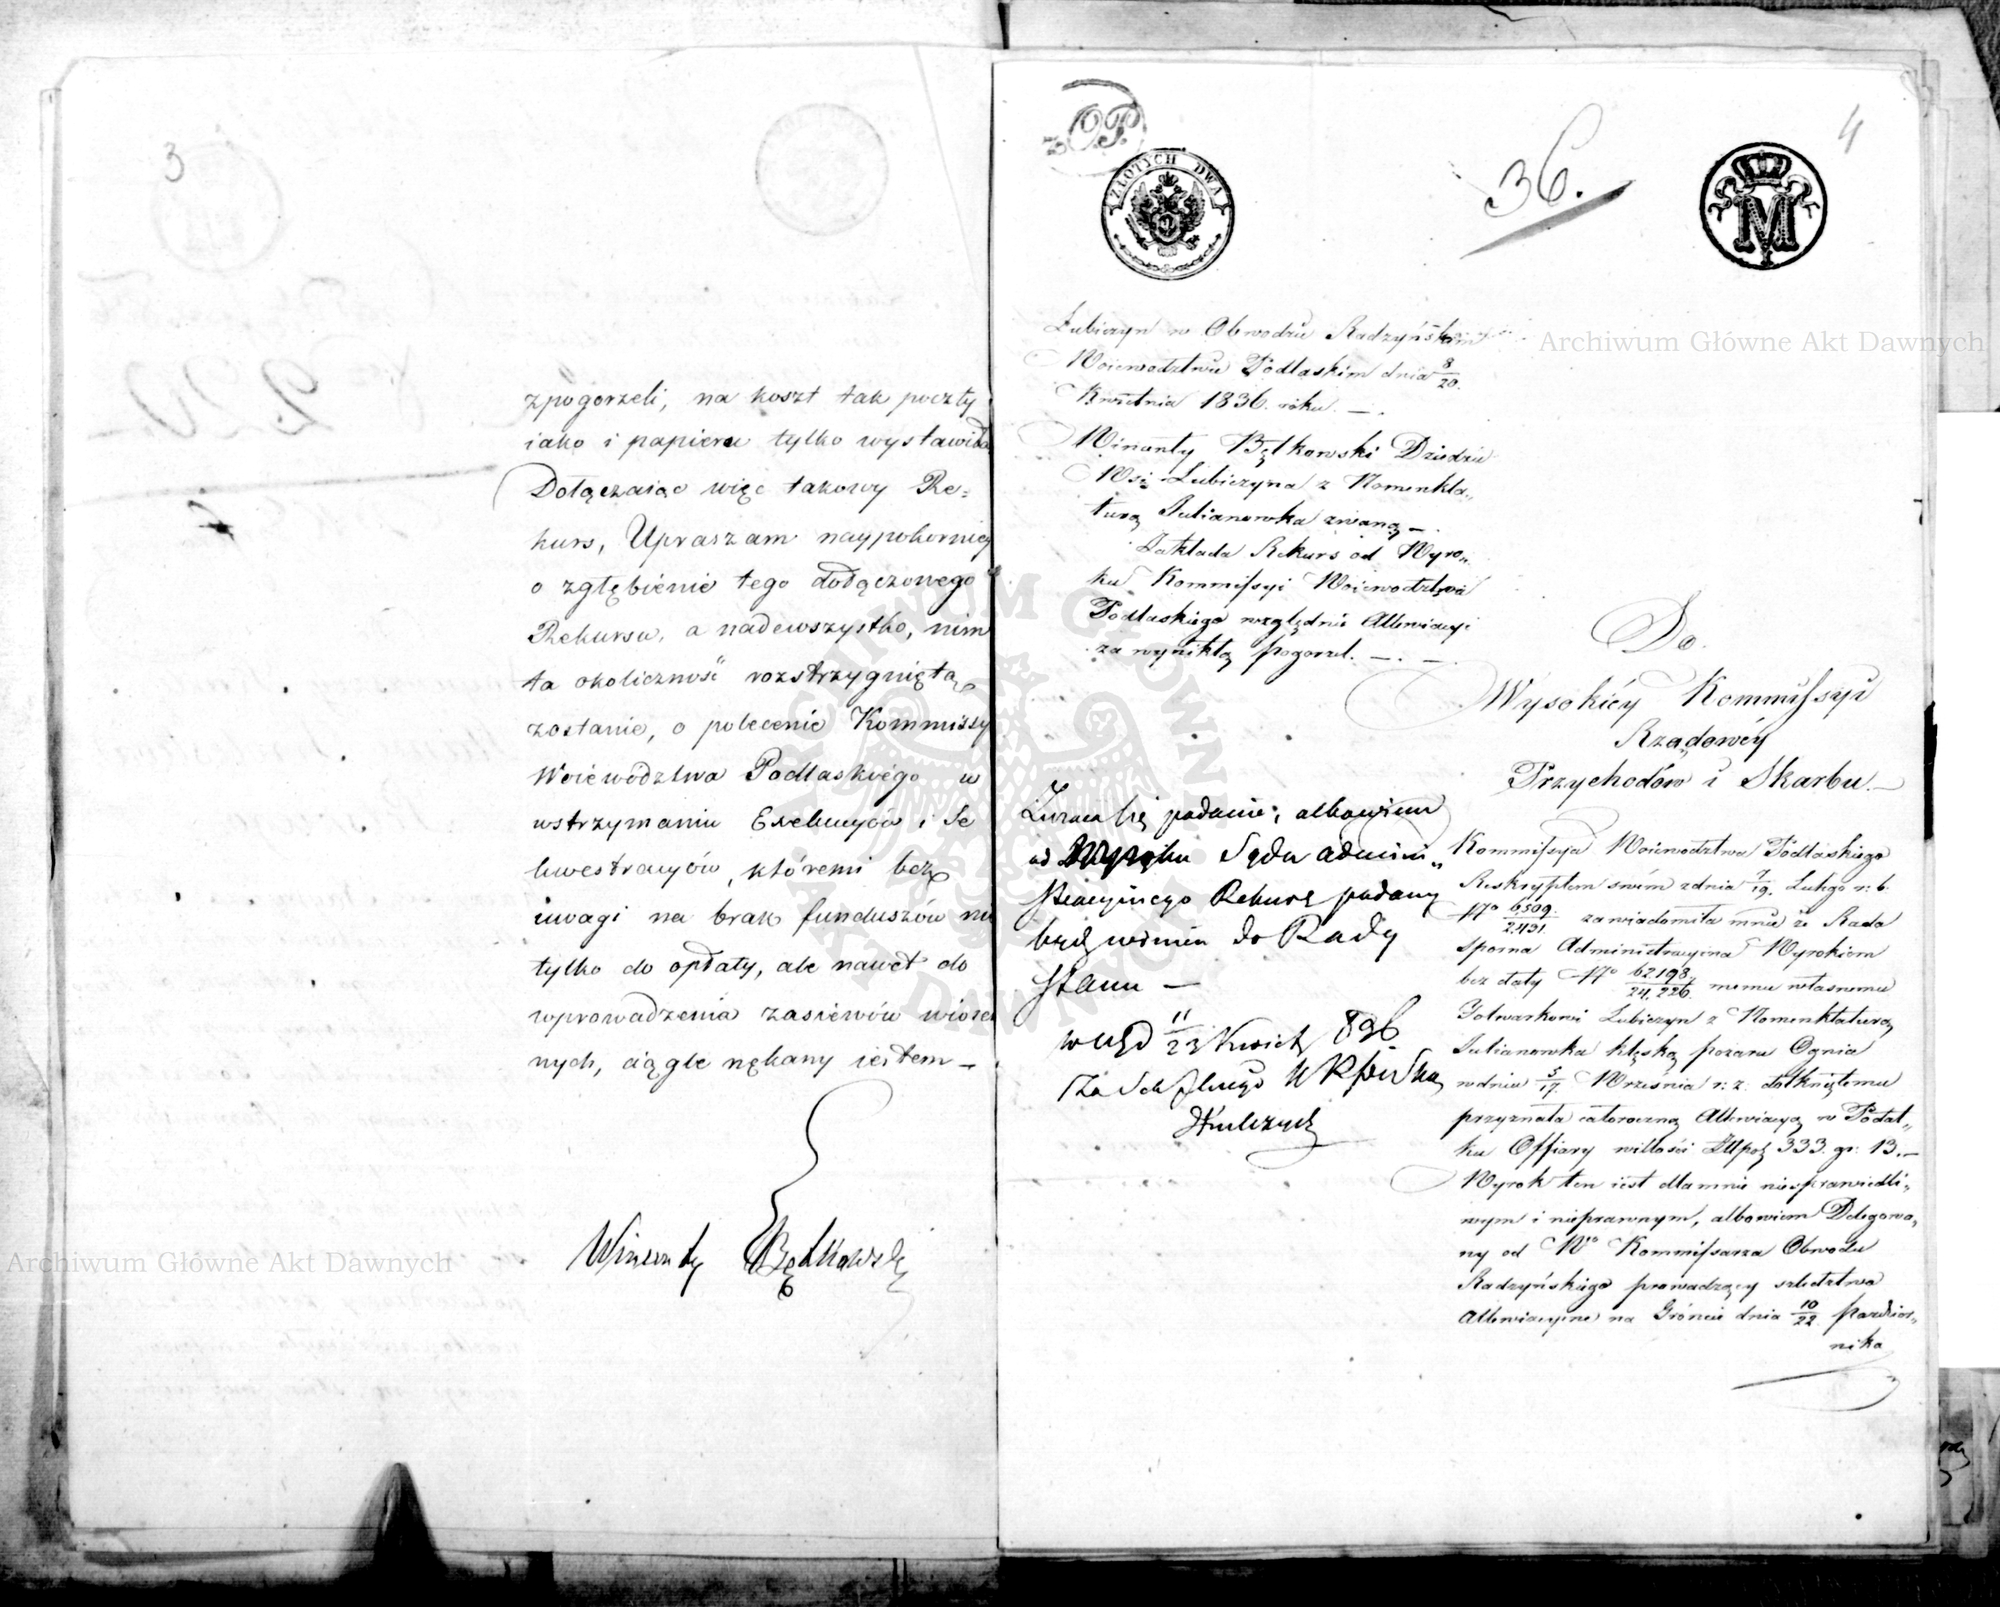 3
zpogorzeli, na koszt tak poczty
iako i papieru tylko wystawiła
Dołączaiąc więc takowy Re=
kurs, Upraszam naypokorniey
o zgłębienie tego dołączonego
Rekursu, a nadewszystko, nim
ta okoliczność rozstrzygniętą
zostanie, o polecenie Kommissyi
Woiewództwa Podlaskiego w
wstrzymaniu Exekucyów i Se
kwestracyów, któremi bez
uwagi na brak funduszów nie
tylko do opłaty, ale nawet do
wprowadzenia zasiewów wiosen
nych, ciągle nękany iestem —
Wincenty Bętkowski
4
36.
O.P.
ZŁOTYCH DWA
M
Lubiczyn w Obwodzie Radzyńskim
Woiewodztwie Podlaskim dnia 8/20.
Kwietnia 1836. roku. —.
Wincenty Bętkowski Dziedzic
Wsi Lubiczyna z Nomenkla„
turą Julianowka zwaną —.
Zakłada Rekurs od Wyro„
ku Kommissyi Woiewodztwa
Podlaskiego względnie Allewiacyi
za wynikłą pogorzel. —. —.
Do
Wysokiéy Kommissyi
Rządowéy
Przychodów i Skarbu. —
Zwraca się podanie; albowiem
od Wyroku Sądu admini„
stracyinego Rekurs podany
być winien do Rady
Stanu —
w 11/23 Kwiet 836
Kommissya Woiewodztwa Podlaskiego
Reskryptem swém z dnia 7/19. Lutego r: b.
No 6,509./2,431. zawiadomiła mnie że Rada
sporna Administracyina Wyrokiem
bez daty No 62198./24,226. memu własnemu
Folwarkowi Lubiczyn z Nomenklaturą
Julianowka klęską pożaru Ognia
w dniu 5/17. Września r: z. dotkniętemu
przyznała całoroczną Allewiacyą w Podat„
ku Offiary w ilości Złłpol 333. gr. 13. —
Wyrok ten iest dla mnie niesprawiedli„
wym i nieprawnym, albowiem Delegowa„
ny od Wo Kommissarza Obwodu
Radzyńskiego prowadzący śledztwo
Allewiacyine na Gróncie dnia 10/22. Pazdzier„
nika
Archiwum Główne Akt Dawnych
Archiwum Główne Akt Dawnych
ARCHIWUM GŁÓWNE AKT DAWNYCH